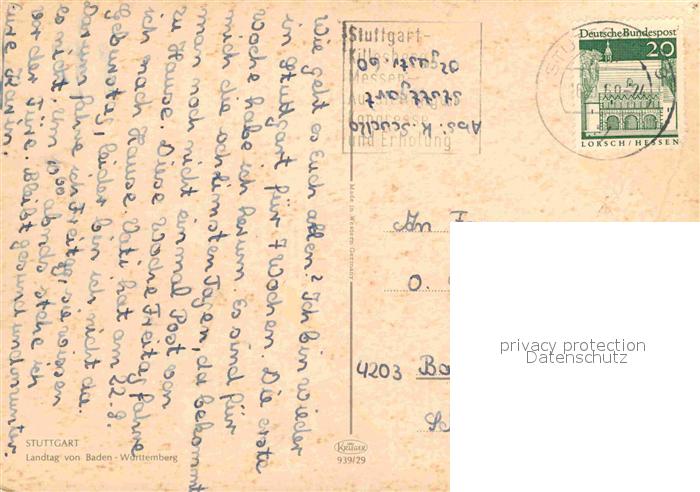 Wie geht es Euch allen? Ich bin wieder
in Stuttgart für 7 Wochen. Die erste
Woche habe ich herum. Es sind für
mich die schlimmsten Tagen, da bekommt
man noch nicht einmal Post von
zu Hause. Diese Woche Freitag fahre
ich nach Hause. Vati hat am 22.8.
Geburtstag, leider bin ich nicht da.
Darum fahre ich Freitag, sie wissen
es nicht, um abends stehe ich
vor der Türe. Bleibt gesund und munter.
Eure Karin.
STUTTGART
Landtag von Baden-Württemberg
Made in Western Germany
KRÜGER
939/29
Stuttgart-
Killesberg
Messen-
Kongresse
und Erholung
Abs: K.
Stuttgart
Deutsche Bundespost
20
LORSCH/HESSEN
An F
O.
4203 Bo
privacy protection
Datenschutz